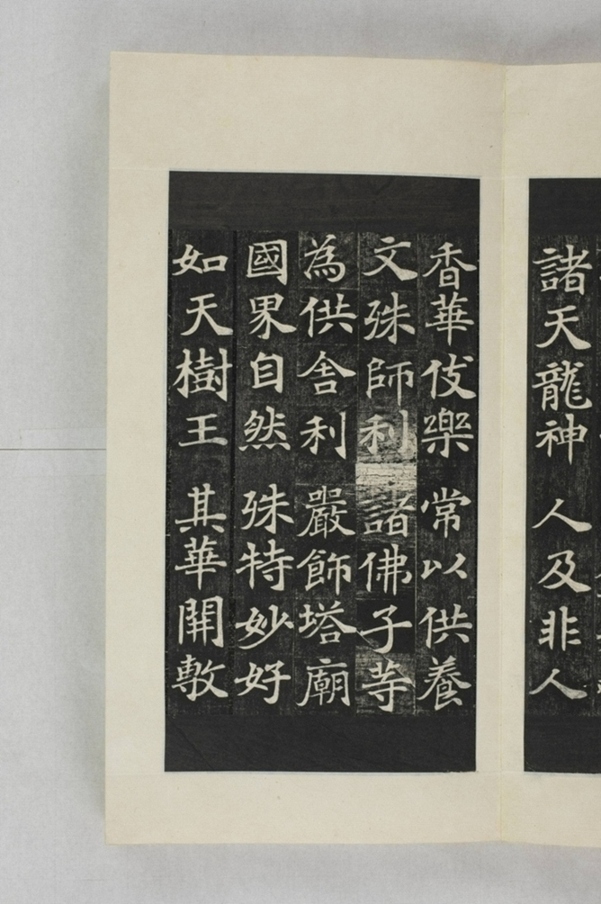 諸天龍神 人及非人
香華伎樂 常以供養
文殊師利 諸佛子等
為供舍利 嚴飾塔廟
國界自然 殊特妙好
如天樹王 其華開敷